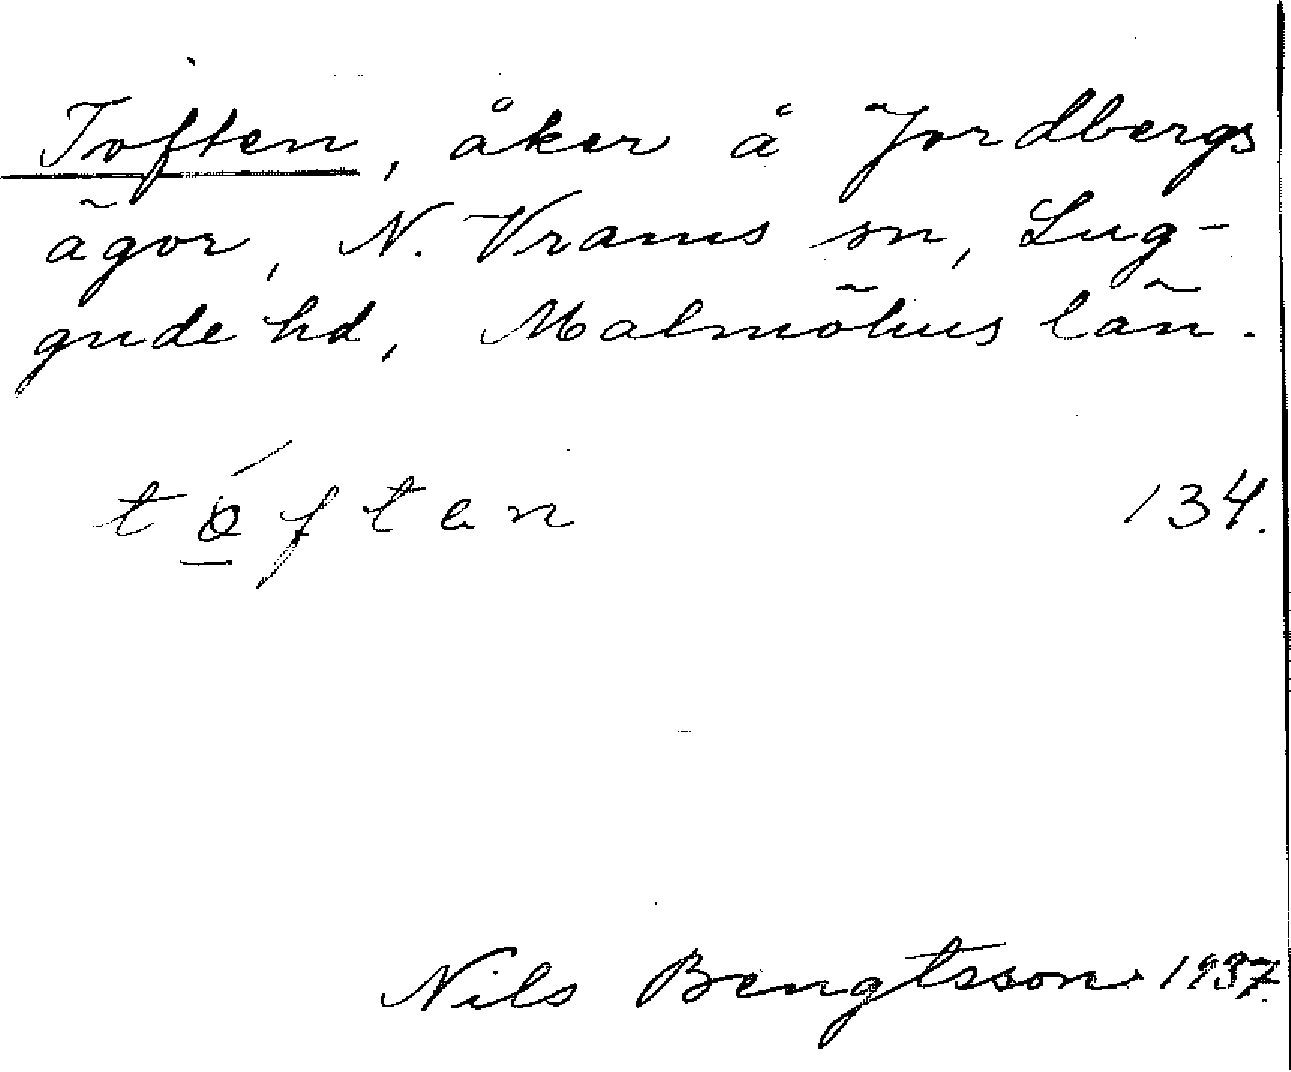 Toften, åker å Jordbergs
ägor, N. Vrams sn, Lug-
gude hd, Malmöhus län.
tǿften 134.
Nils Bengtsson 1937.